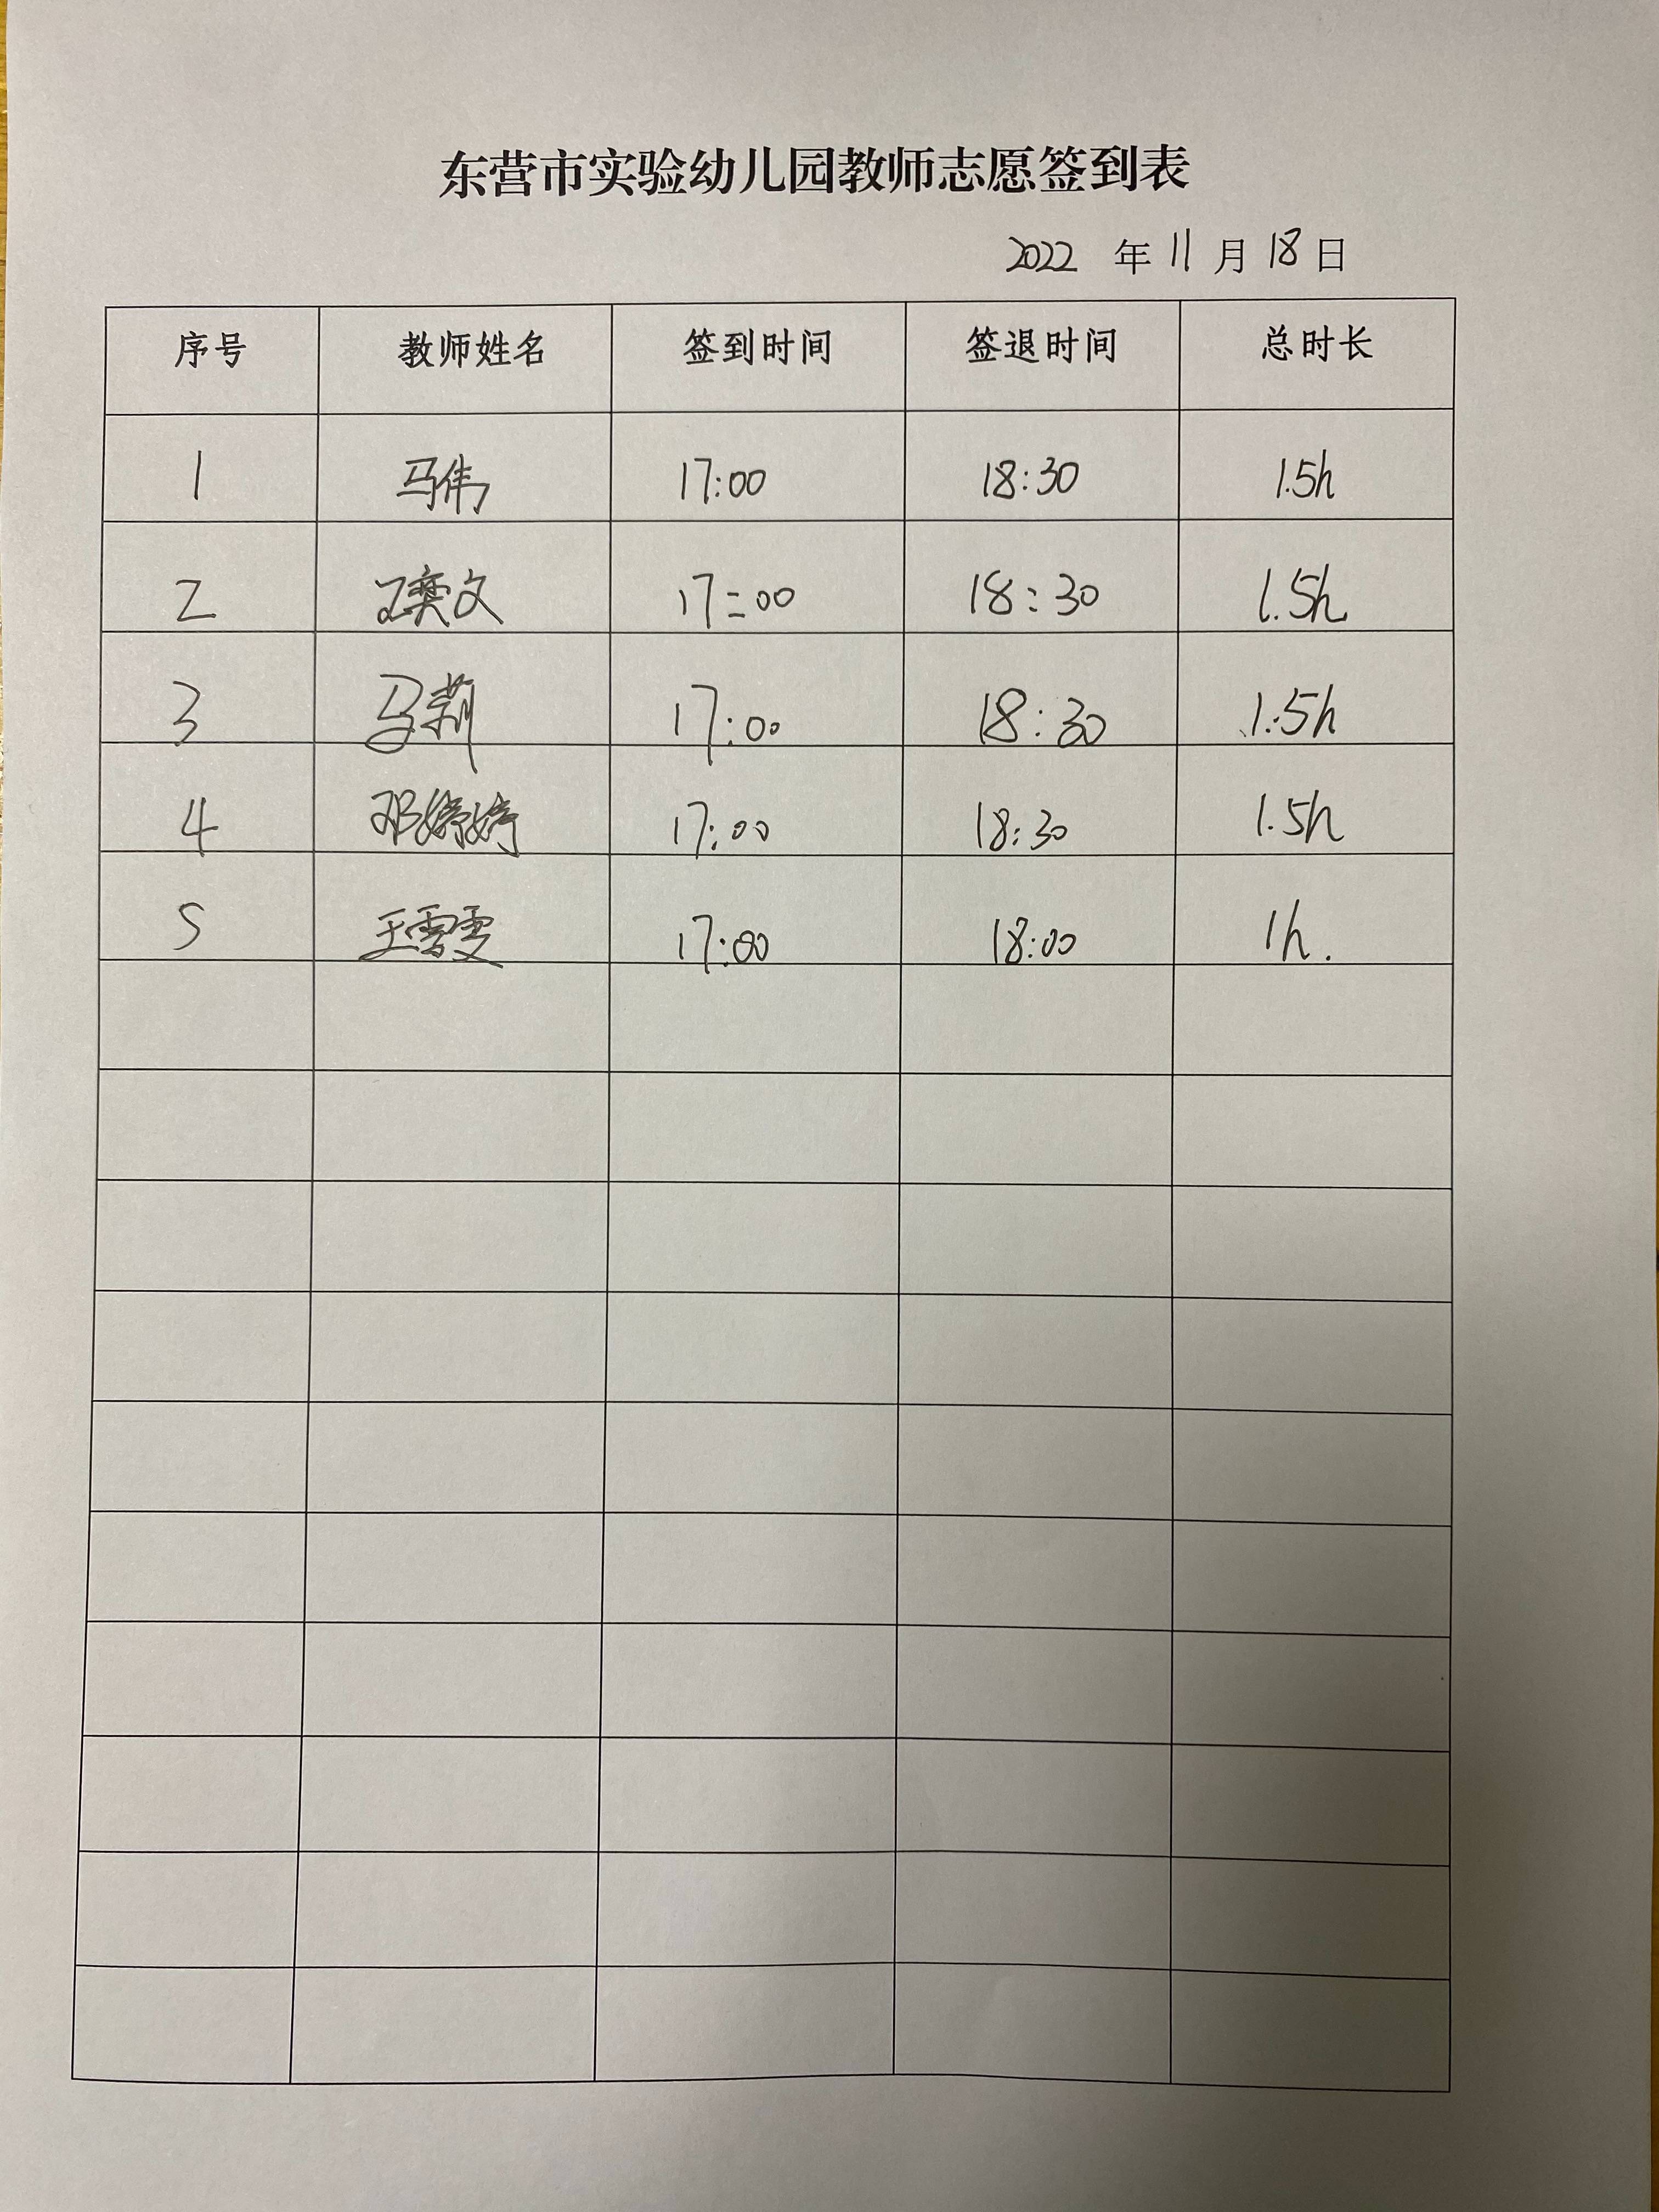 东营市实验幼儿园教师志愿签到表
2022 年 11 月 18 日
序号 教师姓名 签到时间 签退时间 总时长
1 马伟 17:00 18:30 1.5h
2 王奕文 17:00 18:30 1.5h
3 马莉 17:00 18:30 1.5h
4 邓婷婷 17:00 18:30 1.5h
5 王雪雯 17:00 18:00 1h.